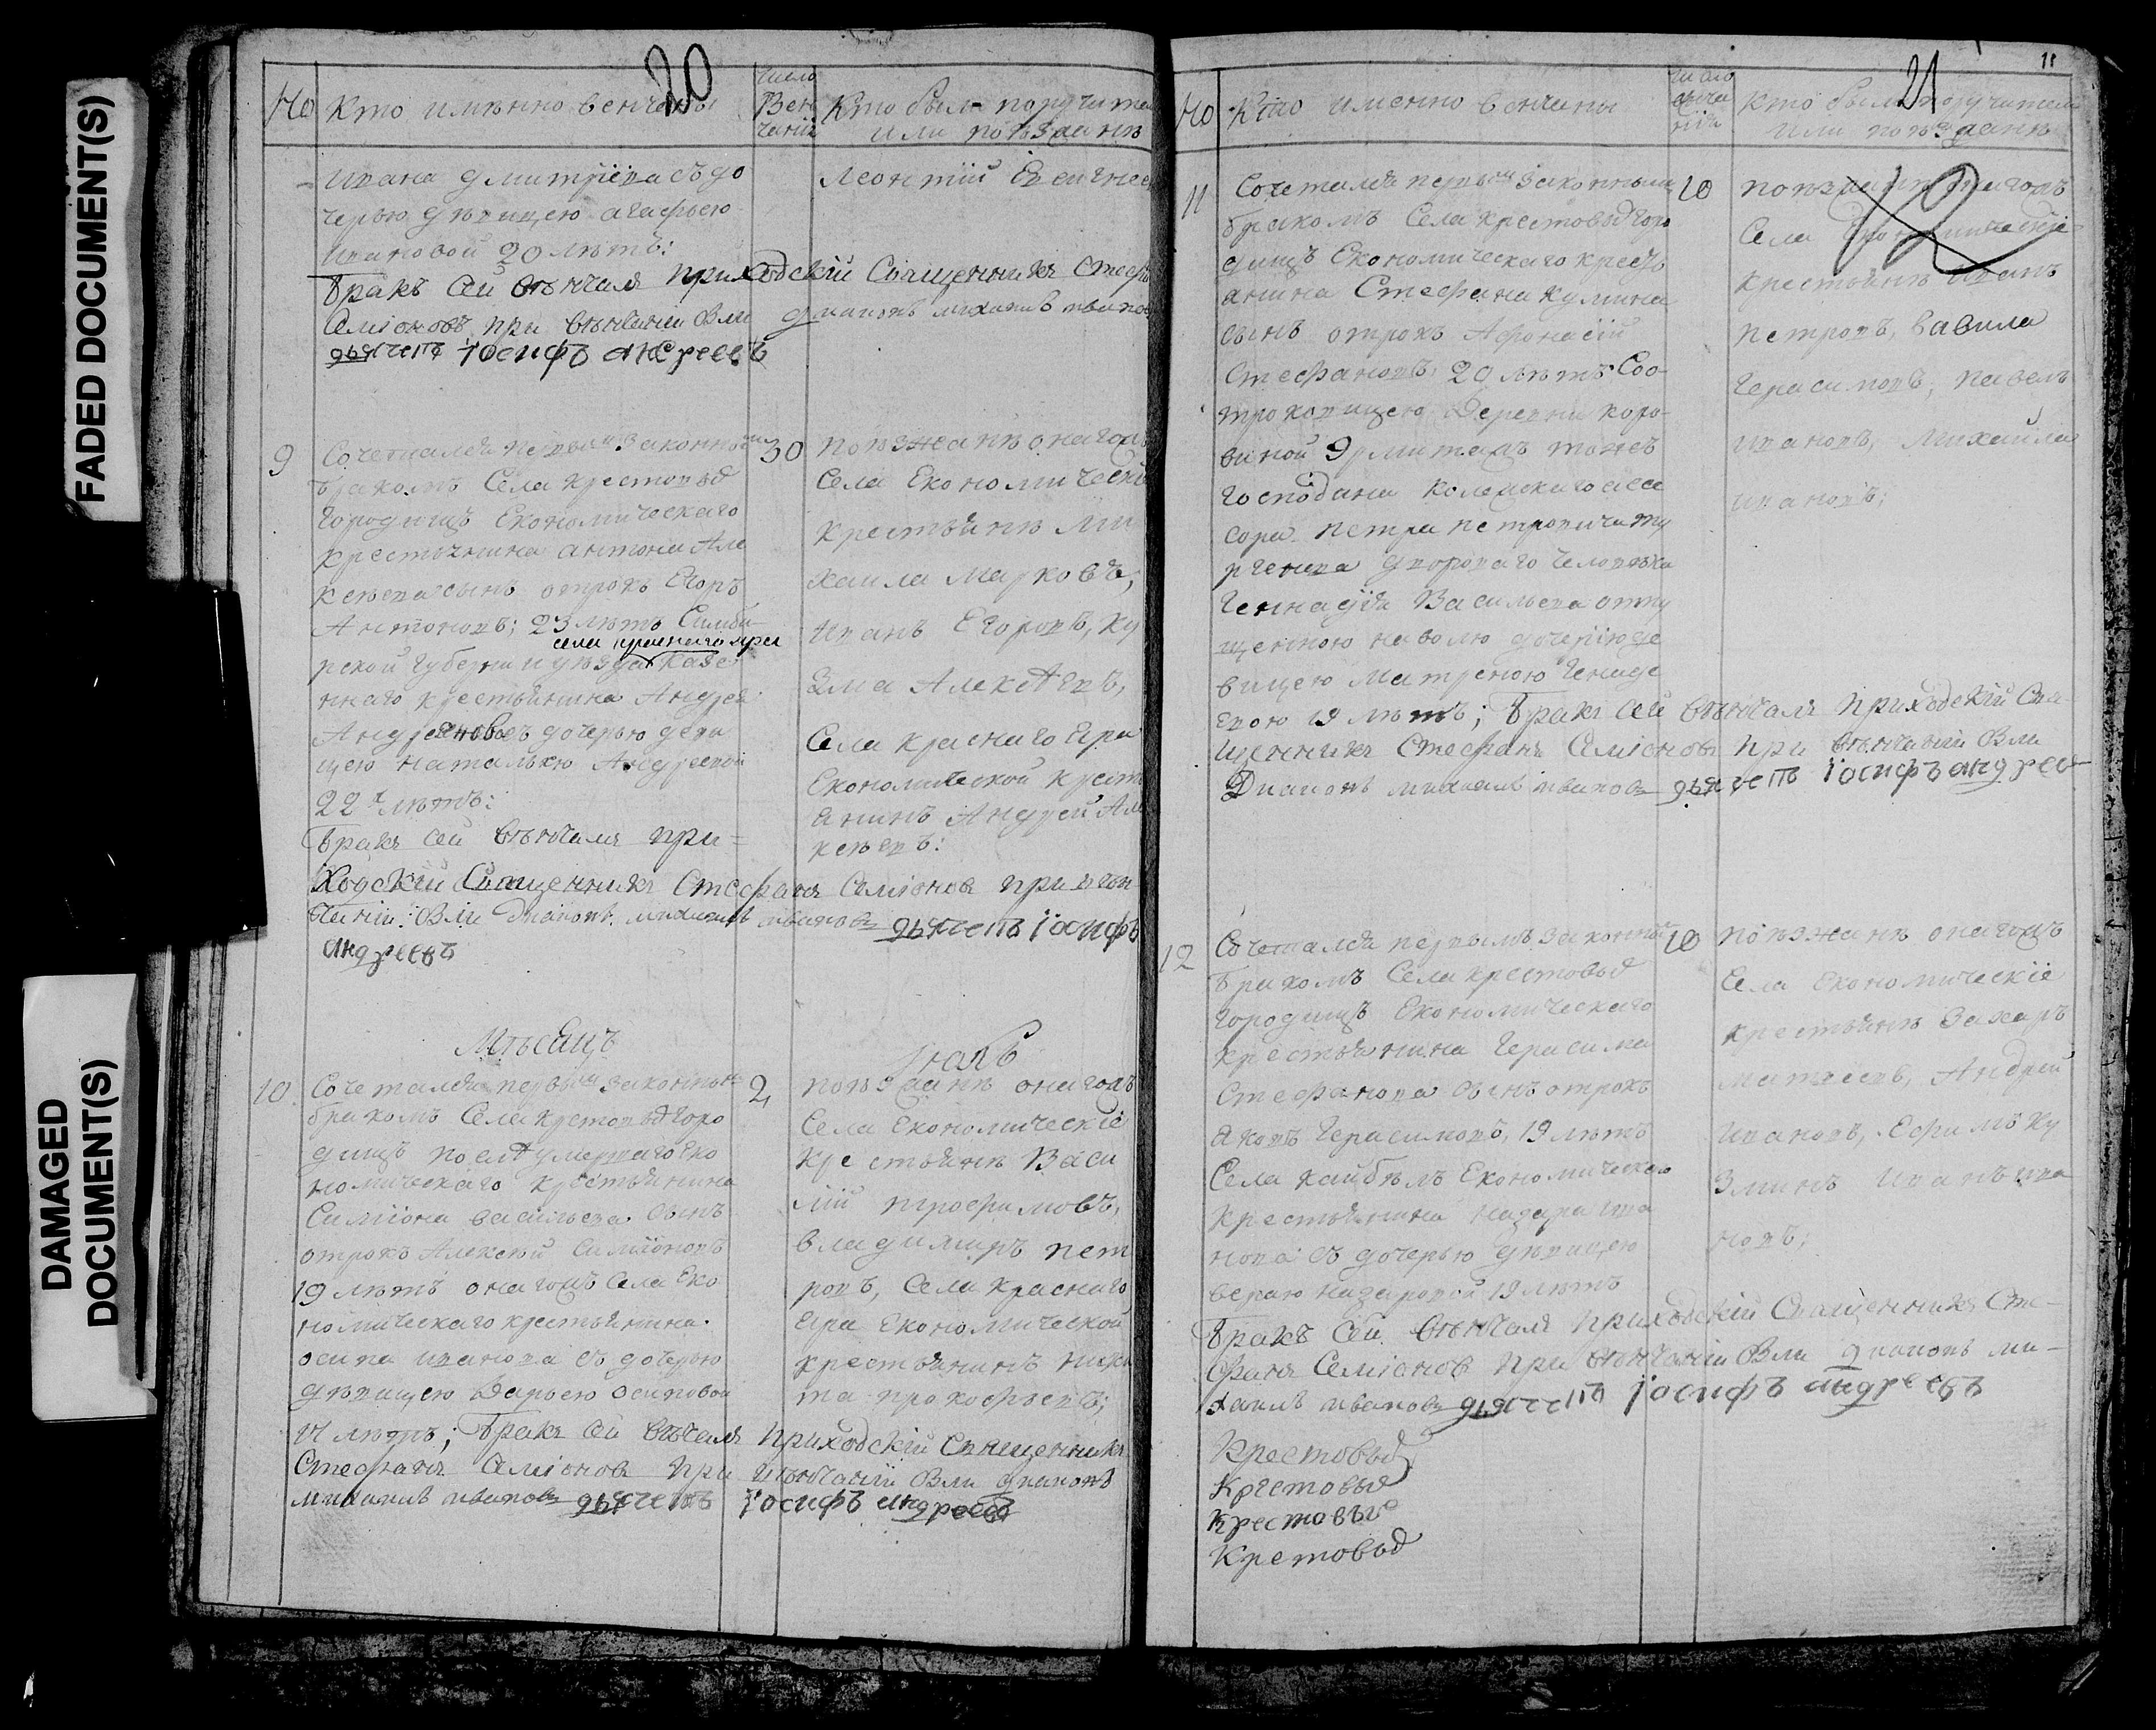 FADED DOCUMENT(S)
DAMAGED
DOCUMENT(S)
20
No
Кто имянно венчаны
число
Вен
чаній
Кто был поручите
или поѣзжанѣ
Ивана Дмитріева съ до
черью дѣвицею агафьею
Ивановой 20 лѣтъ:
Бракъ сей вѣнчалъ приходскій Священникъ Стеф
Семіоновъ при вѣнчаніи были діаконъ михаилъ иванов
дьячекъ іосифъ андреевъ
Леонтій
9
Сочетался первым законным
бракомъ Села крестовыя
городищъ Економическаго
крестьянина антона Але
ксѣева сынъ отрокъ Егоръ
Антоновъ; 23 лѣтъ Симби
села краснаго яра
рской губерни и уѣзда казе
ннаго крестьянина Андрея
съ дочерью деви
цею наталью Андреевой
22 лѣтъ:
Бракъ сей вѣнчалъ при=
ходскій Священникъ Стефанъ Семіоновъ при вѣн
чаніи были діаконъ михаилъ ивановъ дьячекъ іосифъ
андреевъ
30
поѣзжанѣ онагожъ
Села Економически
крестьянѣ Ми
хаила Марковъ,
Иванъ Егоровъ, Ку
зма Алексѣевъ,
Села краснаго яра
Економической крест
янинъ Андрей Але
ксѣевъ:
Мѣсецъ
Іюль
10
Сочетался первым законным
бракомъ Села крестовыя горо
дищъ послѣ умершаго Еко
номическаго крестьянина
Симіона васильева сынъ
отрокъ Алексѣй Симіоновъ
19 лѣтъ онагожъ села Еко
номическаго крестьянина
осипа иванова съ дочерью
дѣвицею Дарьею осиповой
лѣтъ; Бракъ сей вѣнчалъ приходскій Священникъ
Стефанъ Семіоновъ при вѣнчаніи были діаконъ
михаилъ ивановъ дьячекъ іосифъ андреевъ
2
поѣзжанѣ онагожъ
Села Економическіе
крестьянѣ Васи
лій трофимовъ,
владимиръ пет
ровъ, Села краснаго
Яра Економической
крестьянинъ ники
та прокофьевъ;
21
11
No
Кто именно венчаны
число
венча
нія
Кто был поручители
или поѣзжанѣ
11
Сочетался первым законным
бракомъ Села крестовыя горо
дищъ Економическаго кресть
анина Стефана кулина
сынъ отрокъ Афонасій
Стефановъ 20 лѣтъ Соо-
троковицею Деревни коро-
виной Эрмитажъ тожеъ
господина колежскаго асе
сора петра петровича ту
ргенева двороваго человѣка
Геннадія Васильева отпу
щенною наволю дочерію де
вицею матреною Генаде
евою 19 лѣтъ; Бракъ сей вѣнчалъ приходскій Свя-
щенникъ Стефанъ Семіоновъ при вѣнчаніи были
Діаконъ михаилъ ивановъ дьячекъ іосифъ андреев
10
поѣзжанѣ онагожъ
Села Економическіе
крестьянѣ Иванъ
петровъ, вавила
Герасимовъ, павелъ
ивановъ, Михаила
ивановъ;
12
Сочетался первымъ законным
бракомъ Села крестовыя
городищъ Економическаго
крестьянина Герасима
Стефанова сынъ отрокъ
яковъ Герасимовъ, 19 лѣтъ
Села кайбѣлъ Економическаго
крестьянина назара ива
нова съ дочерью дѣвицею
верою назаровой 19 лѣтъ
Бракъ сей вѣнчалъ приходскій Священникъ Сте-
фанъ Семіоновъ при вѣнчаніи были діаконъ ми-
хаилъ ивановъ дьячекъ іосифъ андреевъ
10
поѣзжанѣ онагожъ
Села Економическіе
крестьянѣ Захаръ
матвеевъ, Андрей
ивановъ, Ефимъ ку
зминъ Иванъ ива
новъ;
Крестовыя
Крестовыя
Крестовые
Крестовыя